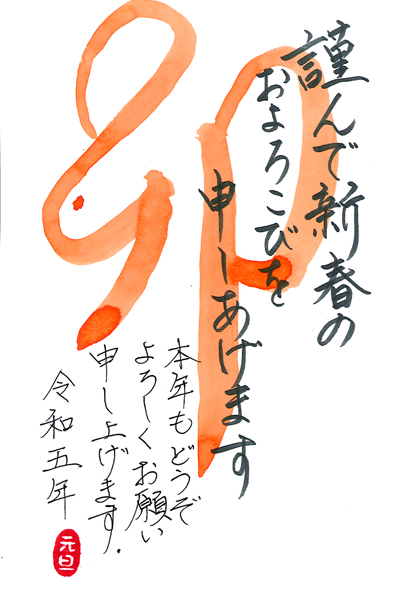 卯
謹んで新春の
およろこびを
申しあげます
本年もどうぞ
よろしくお願い
申し上げます.
令和五年
元旦